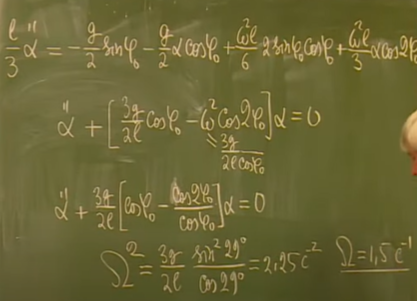 ℓ/3 α̈ = -g/2 sinφ₀ - g/2 α cosφ₀ + ω²ℓ/6 2 sinφ₀ cosφ₀ + ω²ℓ/3 α cos2φ₀
α̈ + [3g/2ℓ cosφ₀ - ω² cos2φ₀] α = 0
= 3g/2ℓcosφ₀
α̈ + 3g/2ℓ [cosφ₀ - cos2φ₀/cosφ₀] α = 0
Ω² = 3g/2ℓ sin²29°/cos29° = 2,25 c⁻² Ω = 1,5 c⁻¹